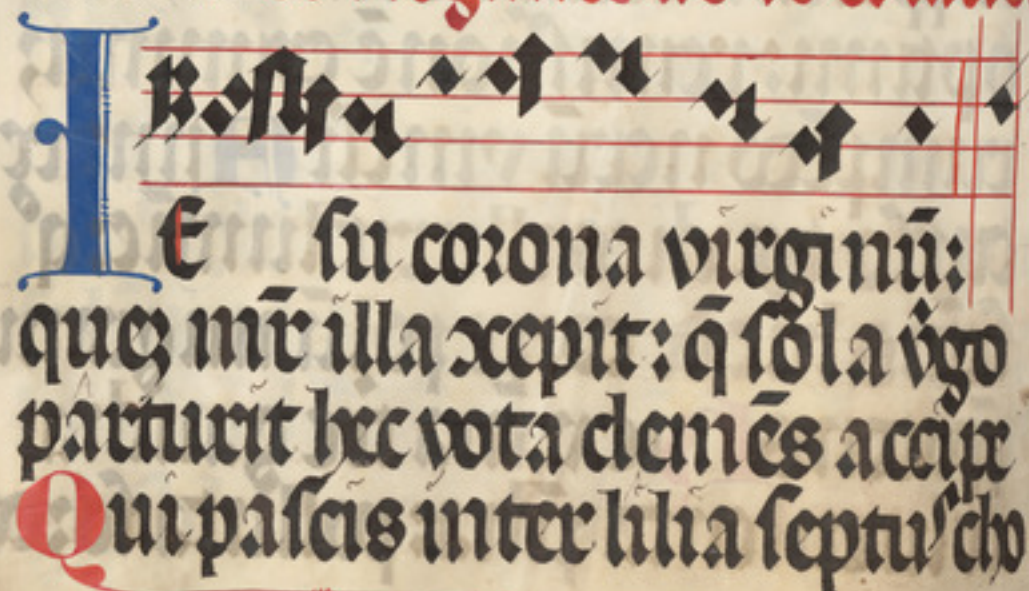 IEsu corona virginū:
quez mr̄ illa ↄcepit: q̄ sola v̊go
parturit hec vota clemēs accipe
Qui pascis inter lilia septus cho